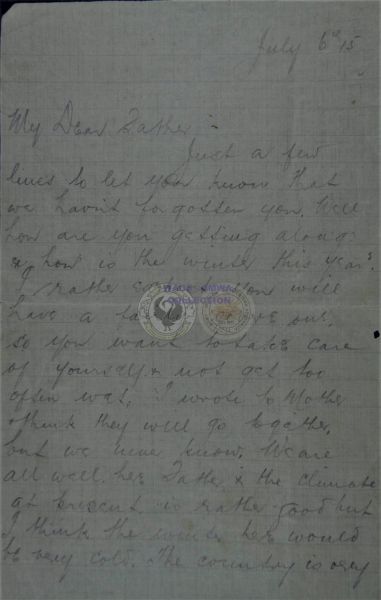 July 6th 15
My Dear Father
Just a few
lines to let you know that
we havint forgotten you. Well
how are you getting along
& how is the winter this year?
I rather you will
have a out,
so you want to take care
of yourself & not get too
often wet. I wrote to Mother
& think they will go together,
but we never know. We are
all well here Father & the climate
at present is rather good but
I think the winter here would
be very cold. The country is very
WAGR
COLLECTION